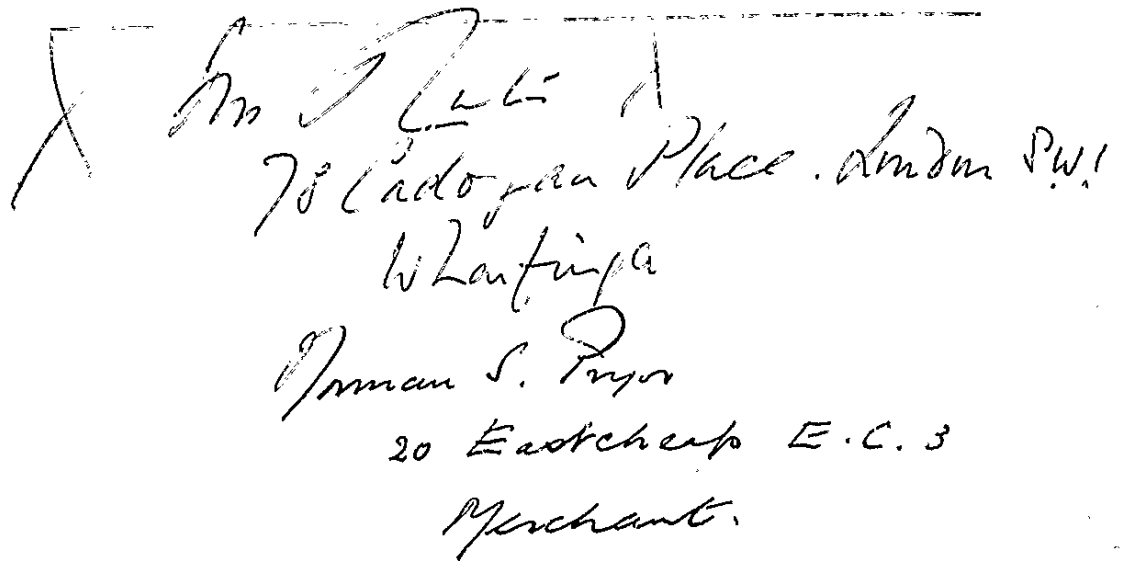 78 Cadogan Place. London S.W.1
Wharfinger
Norman S. Pryor
20 Eastcheap E.C.3
Merchant.